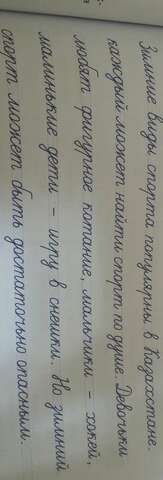 Зимние виды спорта популярны в Казахстане.
каждый может найти спорт по душе. Девочки
любят фигурное котание, мальчики - хокей,
малинькие дети - игру в снешки. Но зимний
спорт может быть достаточьно опасным.